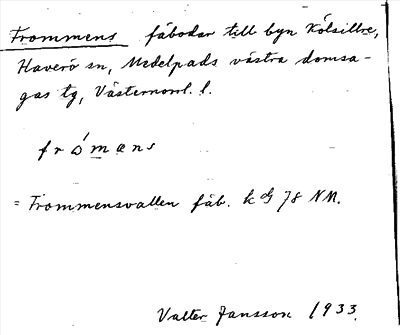 Frommens fäbodar till byn Kölsillre,
Haverö sn, Medelpads västra domsa-
gas tg, Västernorrl. l.
fròməns
= Frommensvallen fäb. k bl 78 NM.
Valter Jansson 1933.